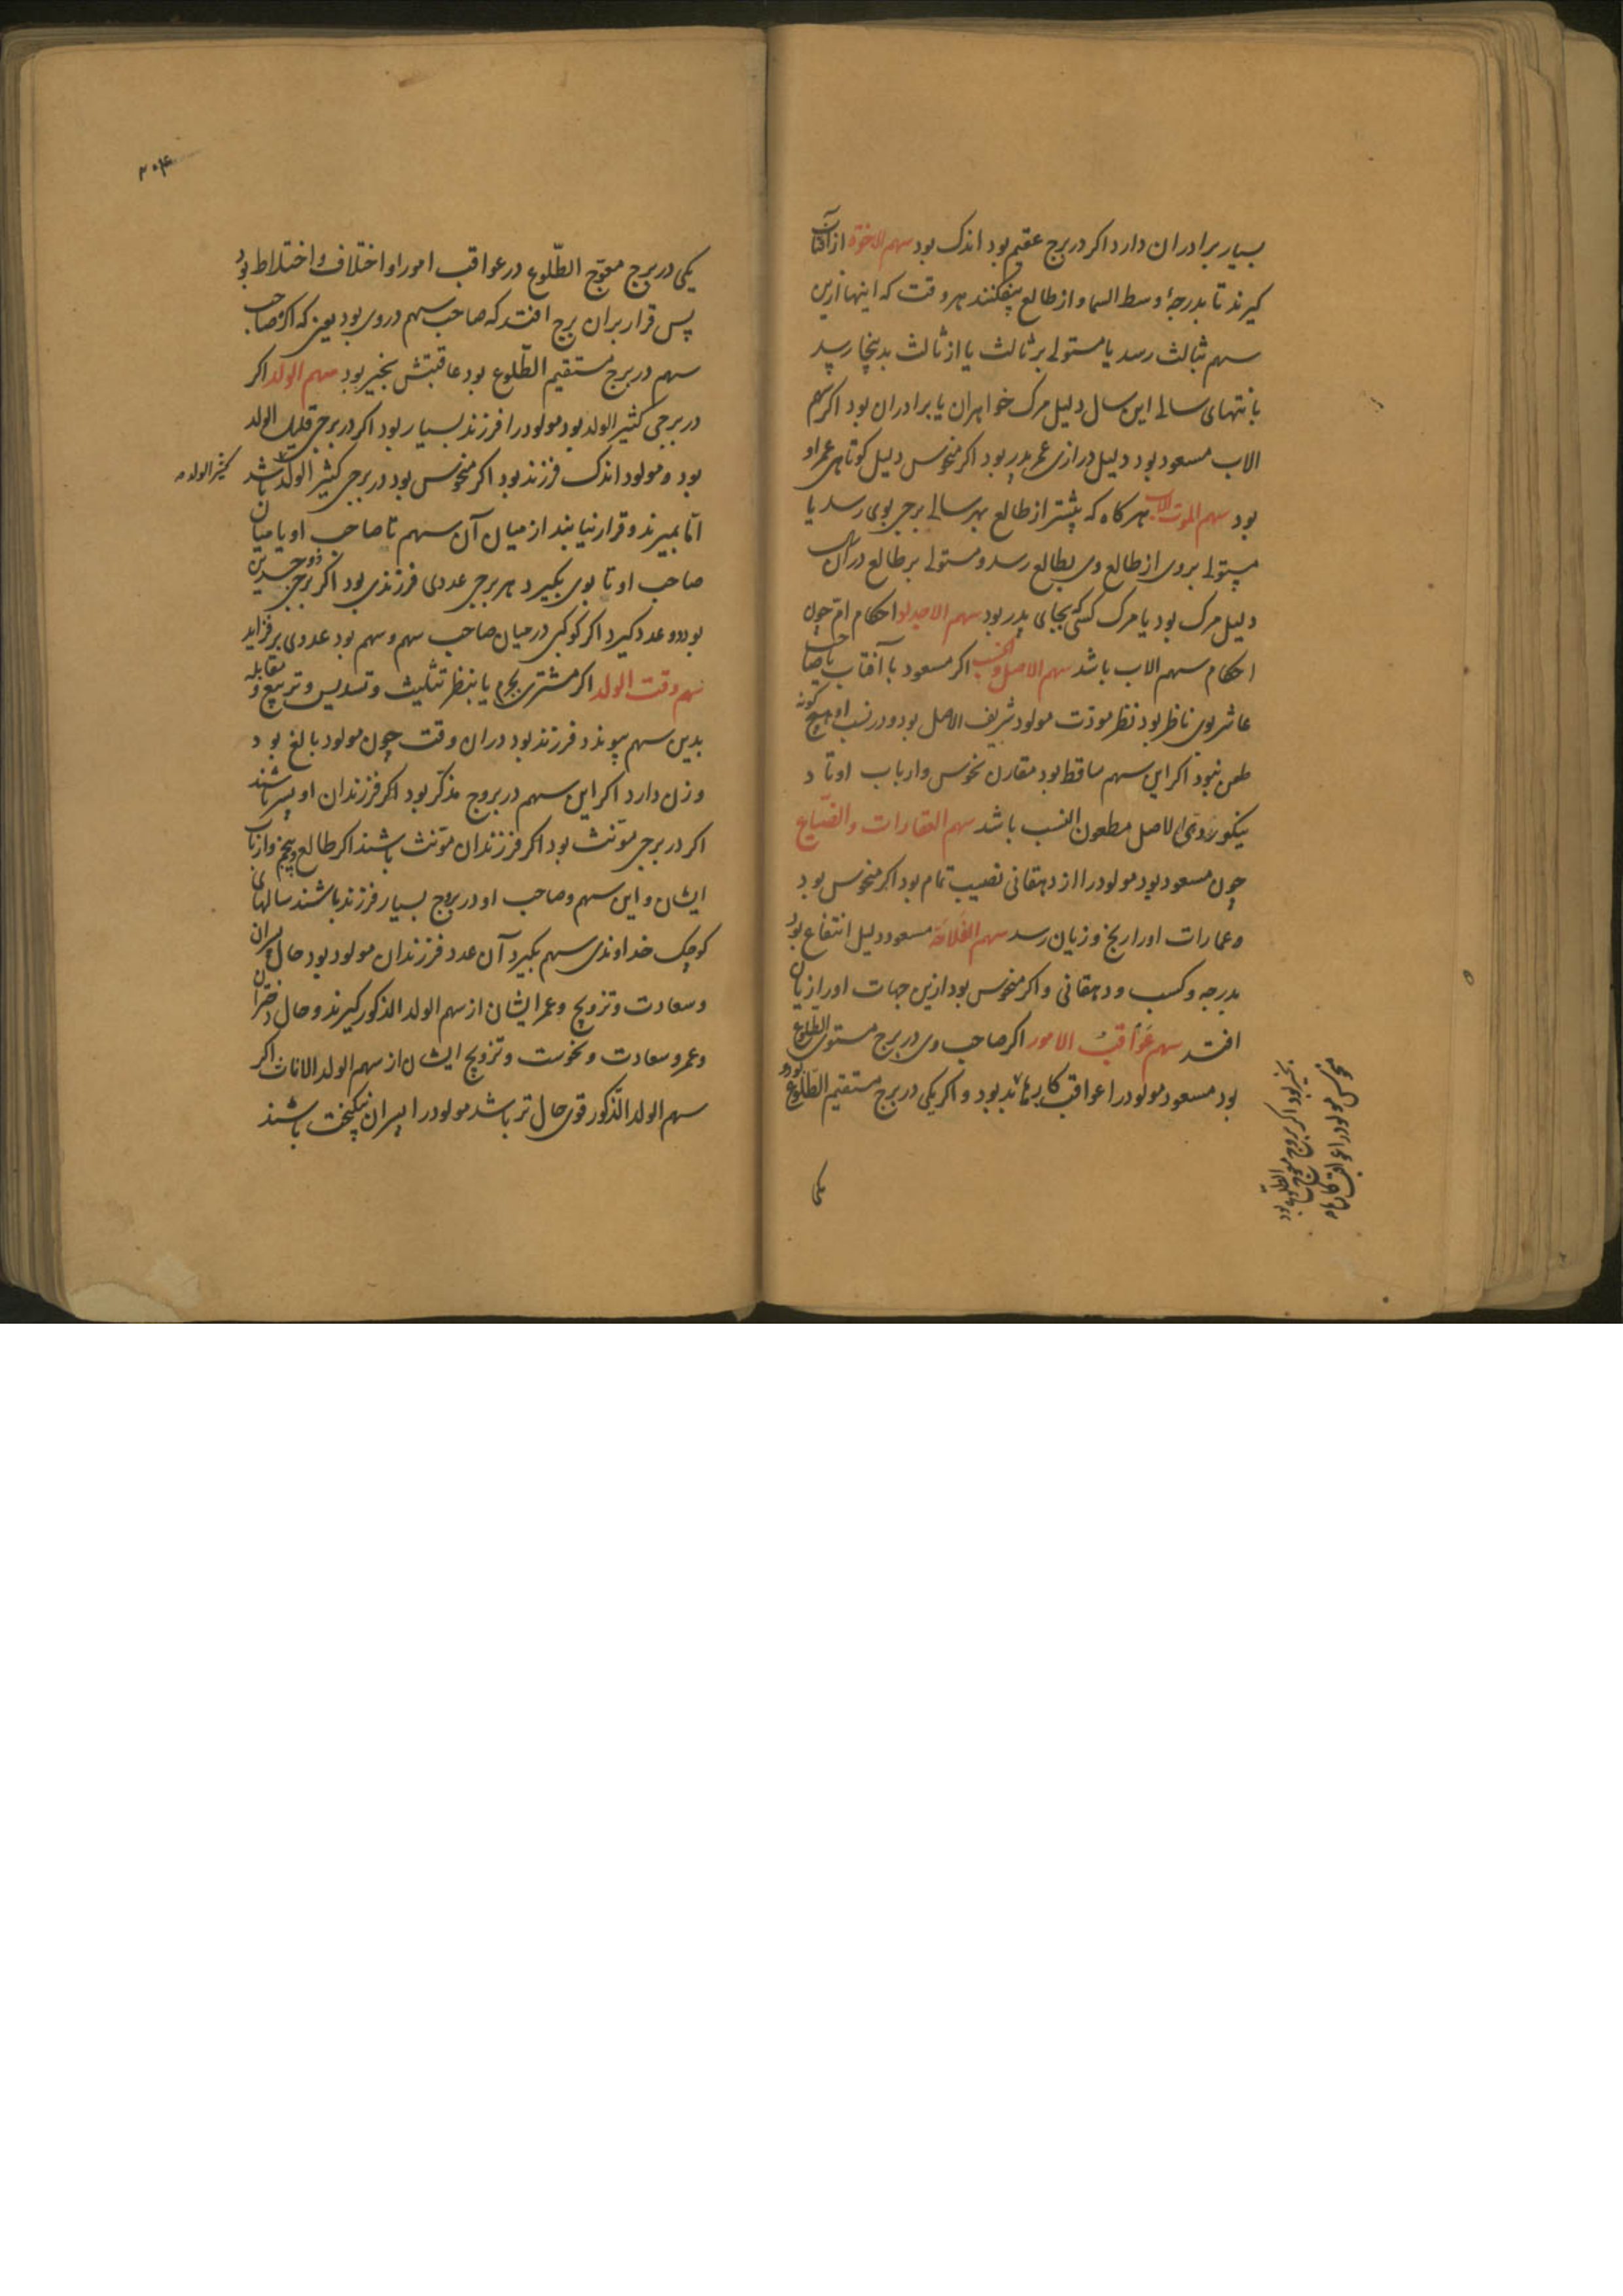 بسیار برادران دارد اکر در برج عقیم بود اندک بود سهم الاخوة از آفتاب
کیرند تا بدرجهٔ وسط السما و از طالع بیفکنند هر وقت که اینها ازین
سهم بثالث رسد یا مستولی بر ثالث یا از ثالث بدینجا رسد
بانتهای سالی این سال دلیل مرک خواهران یا برادران بود اکر سهم
الاب مسعود بود دلیل درازی عمر پدر بود اکر منحوس دلیل کوتاهی عمر او
بود سهم الموت الاب هر کاه که پیشتر از طالع بهر سالی برجی بوی رسد یا
مستولی بروی از طالع وی بطالع رسد و مستولی بر طالع در آن سال
دلیل مرک بود یا مرک کسی بجای پدر بود سهم احکام ام چون
احکام سهم الاب باشد سهم الاصل و الحسب اکر مسعود با آفتاب یا صاحب
عاشر بوی ناظر بود نظر مودت مولود شریف الاصل بود و در نسب او هیچ کونه
طعن نبود اکر این سهم ساقط بود مقارن نحوس و ارباب اوتاد
ینکورند دنی الاصل مطعون النسب باشد سهم العقارات والضیاع
چون مسعود بود مولود را از دهقانی نصیب تمام بود اکر منحوس بود
و عمارات او را رنج و زیان رسد سهم الفلاحة مسعود دلیل انتفاع بود
بدرجه و کسب و دهقانی و اکر منحوس بود ازین جهات او را زیان
افتد سهم عواقب الامور اکر صاحب وی در برج مستوی الطلوع
بود مسعود مولود را عواقب کارها بد بود و اکر یکی در برج مستقیم الطلوع بود و
بخیر بود اکر بروج معوج الطلوع بود
منحوس مولود را عواقب کارها
یکی
۲۰۴
یکی در برج معوّج الطّلوع در عواقب امور او اختلاف و اختلاط بود
پس قرار بران برج افتد که صاحب سهم در وی بود یعنی که اکر صاحب
سهم در برج مستقیم الطّلوع بود عاقبتش بخیر بود سهم الولد اکر
در برجی کثیر الولد بود مولود را فرزند بسیار بود اکر در برجی قلیل الولد
بود و مولود اندک فرزند بود اکر منحوس بود در برجی کثیر الولد باشد
کثیر الولد
امّا بمیرند و قرار نیابند از میان آن سهم تا صاحب او یا میان
صاحب او تا بوی بکیرد هر برجی عددی فرزندی بود اکر برجی ذو جسدین
بود دو عدد کیرد اکر کوکبی در میان صاحب سهم و سهم بود عددی بر فزاید
سهم وقت الولد اکر مشتری بجرم یا بنظر تثلیث و تسدیس و تربیع و مقابله
بدین سهم پیوندد فرزند بود در ان وقت چون مولود بالغ بود
و زن دارد اکر این سهم در بروج مذکّر بود اکر فرزندان او پسر باشند
اکر در برجی مونث بود اکر فرزندان مونث باشند اکر طالع و پنجم و ارباب
ایشان و این سهم و صاحب او در بروج بسیار فرزند باشند سالهای
کوچک خداوندی سهم بکیرد آن عدد فرزندان مولود بود حال پسران
و سعادت و تزویج و عمر ایشان از سهم الولد الذکور کیرند و حال دختران
و عمر و سعادت و نحوست و تزویج ایشان از سهم الولد الاناث اکر
سهم الولد الذّکور قوی حال تر باشد مولود را پسران نیکبخت باشند